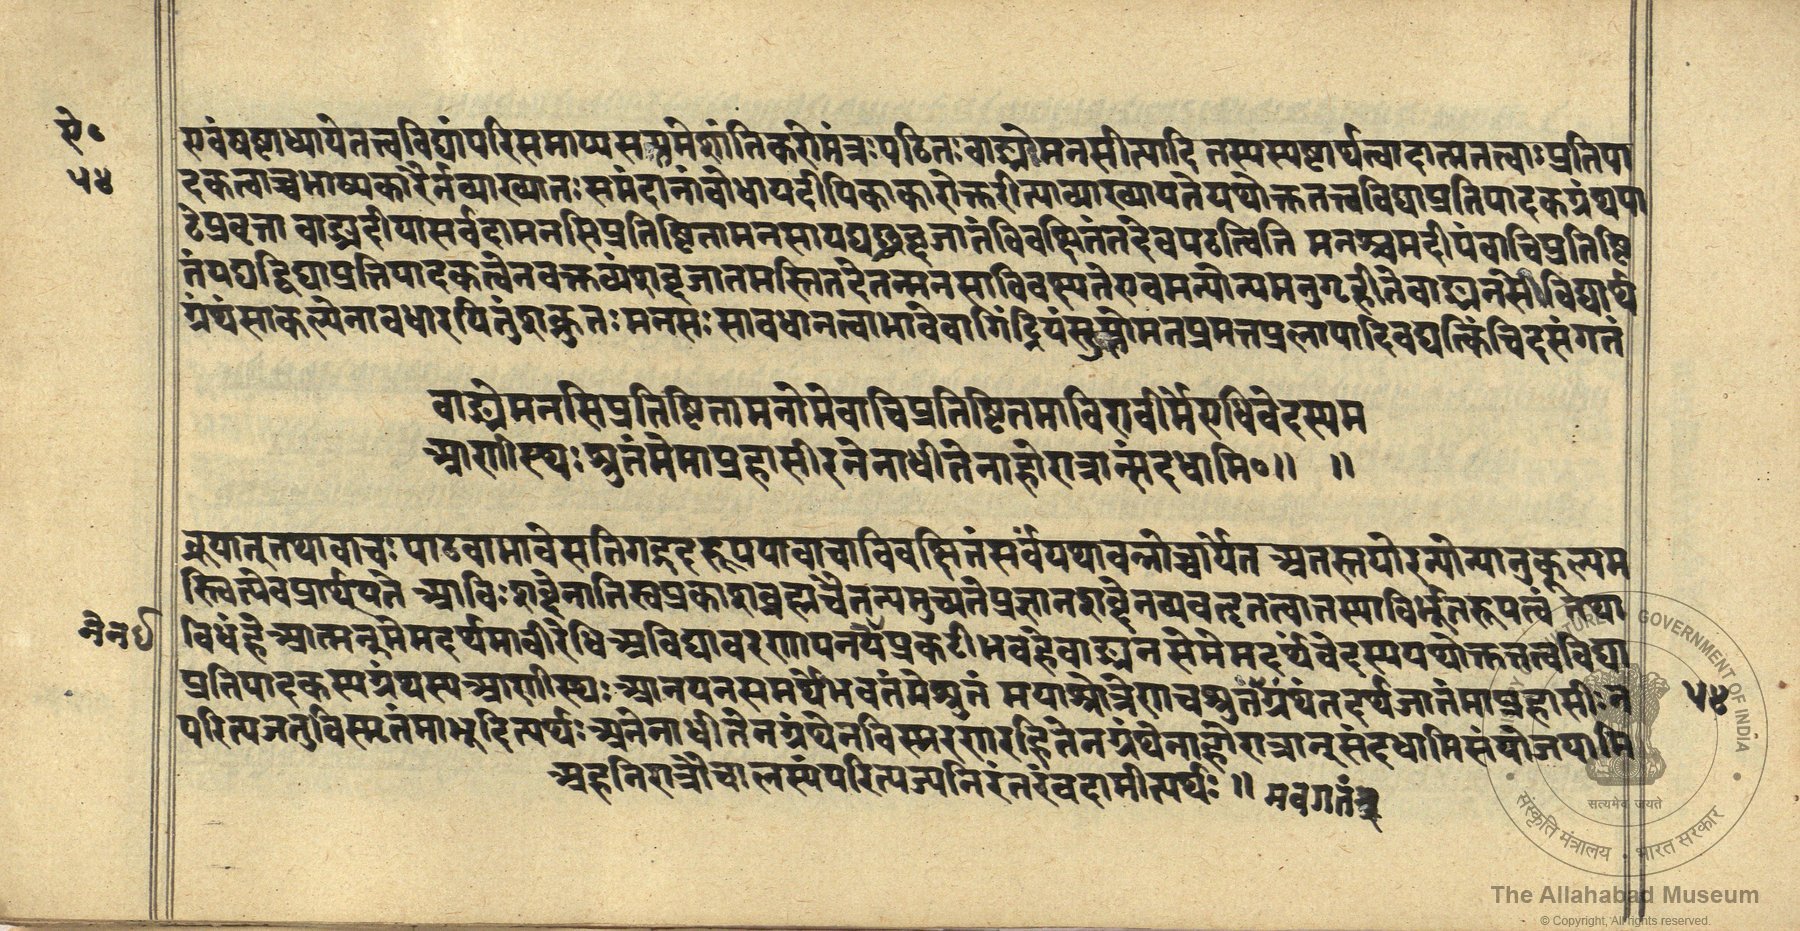 ऐ॰
५४
एवंषष्टाध्यायेतत्त्वविद्यांपरिसमाप्यसप्तमेशांतिकरोमंत्रःपठितःवाङ्मेमनसीत्यादि तस्यस्पष्टार्थत्वादात्मतत्वाःप्रतिपा
दकत्वाच्चभाष्यकारैर्नव्याख्यातःसमंदानांबोधायदीपिकाकारोक्तरीत्याव्याख्यायतेयथोक्ततत्त्वविद्याप्रतिपादकग्रंथपा
ठेप्रवृत्ता वाङ्मदीयासर्वदामनसिप्रतिष्टितामनसायद्यछब्दजातंविवक्षितंतदेवपठत्विति मनश्चमदीयंवाचिप्रतिष्टि
तंयद्यद्विद्याप्रतिपादकत्वेनवक्तव्यंशब्दजातमस्तितदेतन्मनसाविवक्ष्यतेएवमन्योन्यमनुगृहीतेवाङ्मनसेविद्यार्थ
ग्रंथंसाकल्येनावधारयितुंशक्नुतःमनसःसावधानत्वाभावेवागिंद्रियंसुप्तोमतप्रमत्तप्रलापादिवद्यत्किंचिदसंगतं
वाङ्मेमनसिप्रतिष्टितामनोमेवाचिप्रतिष्टितमाविरावीर्मएधिवेदस्यम
आणीस्थः श्रुतंमेमाप्रहासीरनेनाधीतेनाहोरात्रान्संदधामि॰॥ ॥
ब्रूयात्तथावाचःपाटवाभावेसतिगद्गदरूपयावाचाविवक्षितंसर्वंयथावन्नोच्चार्येत अतस्तयोरन्योन्यानुकूल्यम
स्त्वित्येवप्रार्थयते आविःशब्देनातिस्वप्रकाशब्रह्मचैतन्यमुच्यतेप्रज्ञानशब्देनव्यवहृतत्वातस्याविर्भूतरूपत्वं तथा
विधंहेआत्मन्मेमदर्थमावीरेधिअविद्यावरणापनयेप्रकटीभवहेवाङ्मनसेमेमदर्थंवेदस्ययथोक्ततत्त्वविद्या
प्रतिपादकस्यग्रंथस्यआणीस्थःआनयनसमर्थेभवतंमेश्रुतं मयाश्रोत्रेणचश्रुतंग्रंथंतदर्थजातंमाप्रहासीःन
परित्यजतुविस्मृतंमाभूदित्यर्थःअनेनाधीतेनग्रंथेनविस्मरणरहितेनग्रंथेनाहोरात्रान्संदधामिसंयोजयामि
अहनिरात्रौचालस्यंपरित्यज्यनिरंतरंवदामीत्यर्थः॥
५४
सत्यमेव जयते
GOVERNMENT OF INDIA
संस्कृति मंत्रालय • भारत सरकार
The Allahabad Museum
© Copyright, All rights reserved.